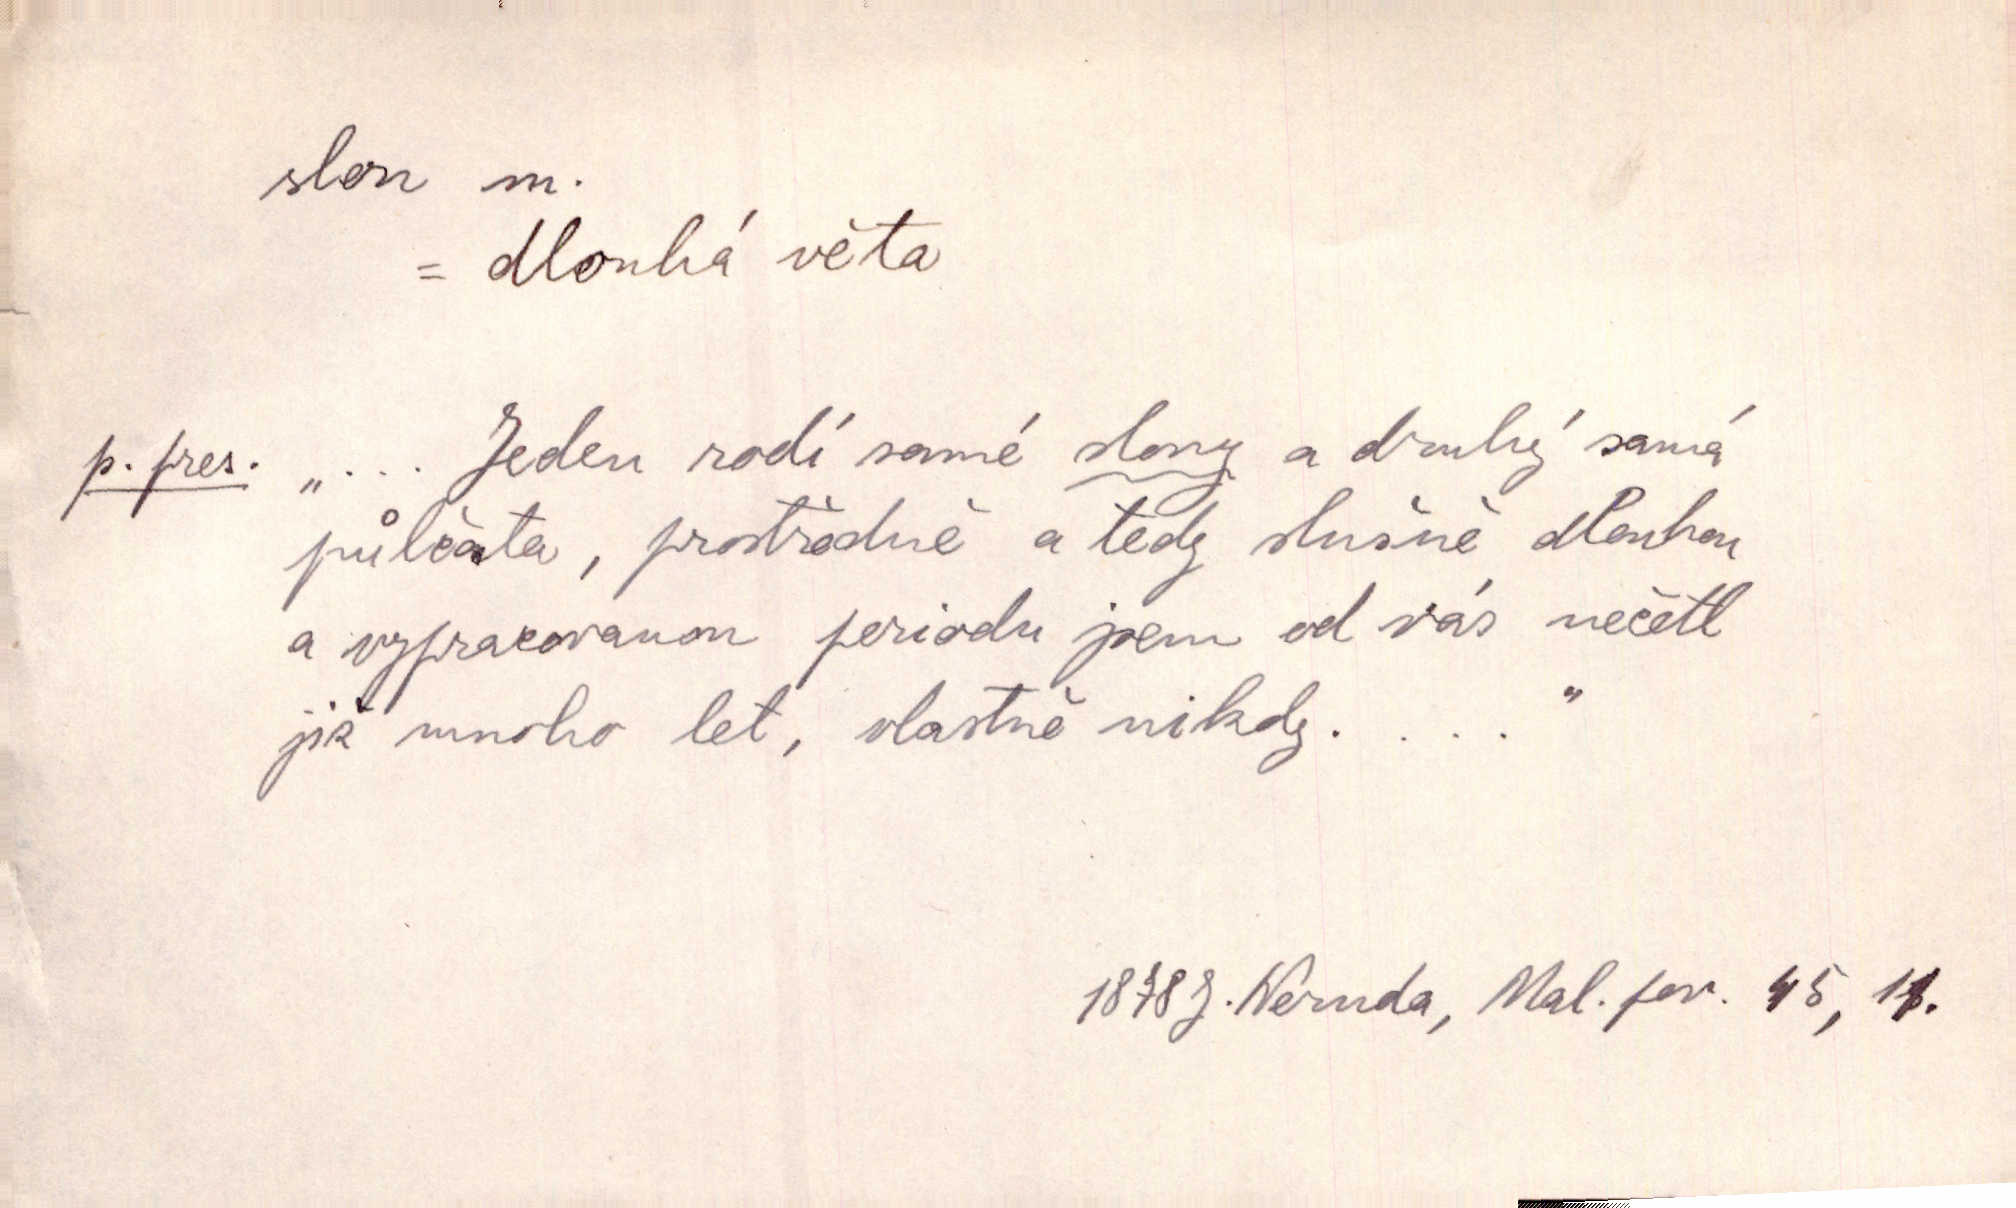 slon m.
= dlouhá věta
p. pres. „... Jeden rodí samé slony a druhý samá
půlčata, prostředně a tedy slušně dlouhou
a vypracovanou periodu jsem od vás nečetl
již mnoho let, vlastně nikdy. ... "
1878 J. Neruda, Mal. pov. 45,